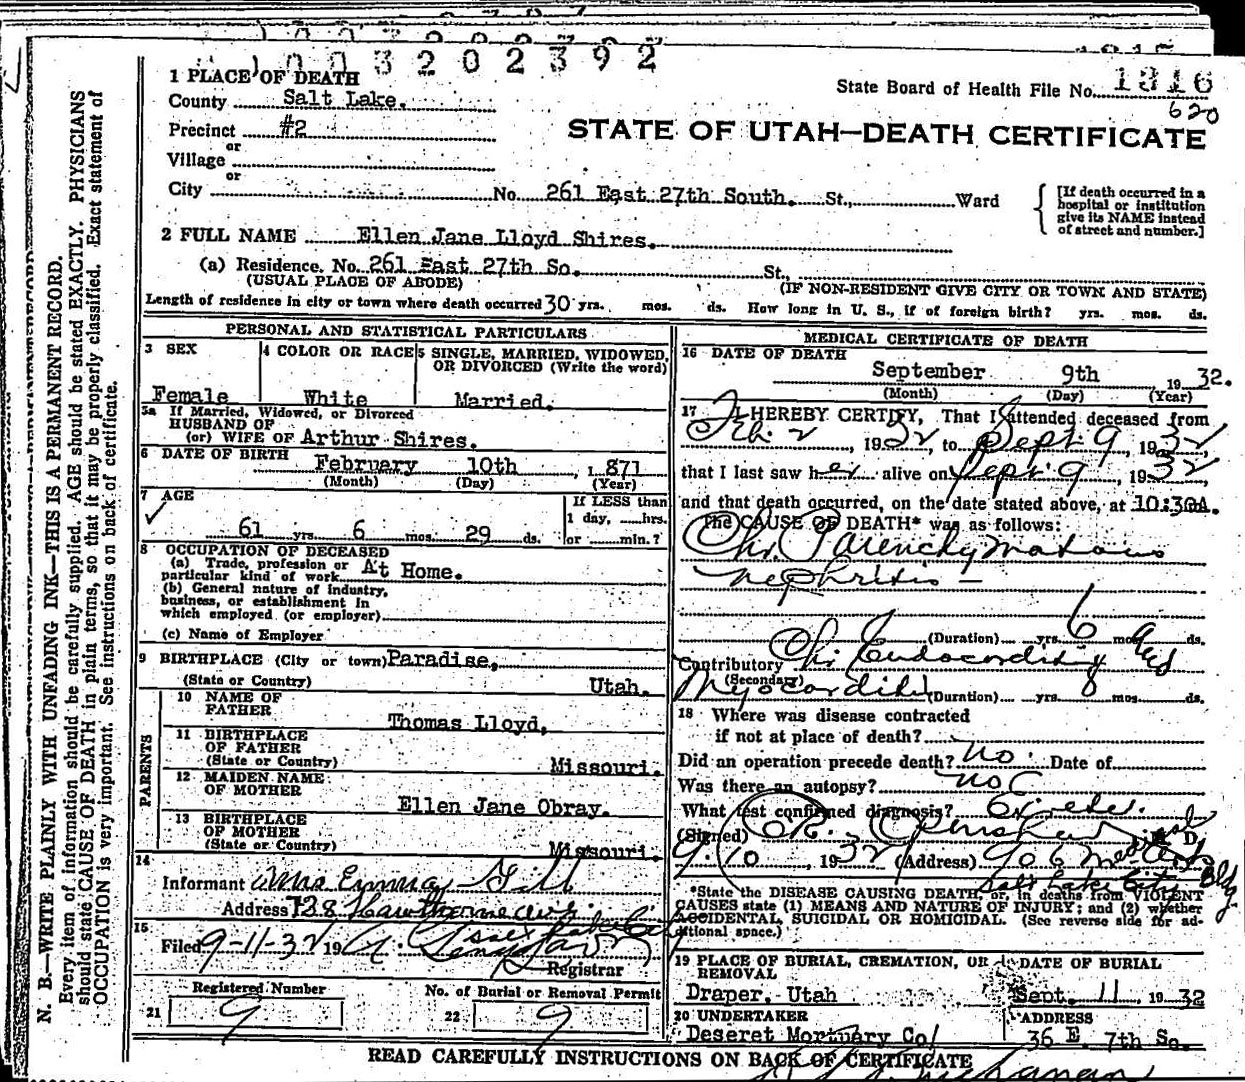 1003202392
1 PLACE OF DEATH
State Board of Health File No. 1316
620
County Salt Lake.
Precinct #2
or
Village
or
STATE OF UTAH—DEATH CERTIFICATE
City No. 261 East 27th South. St., Ward
[If death occurred in a hospital or institution give its NAME instead of street and number.]
2 FULL NAME Ellen Jane Lloyd Shires.
(a) Residence. No. 261 East 27th So. St.,
(USUAL PLACE OF ABODE) (IF NON-RESIDENT GIVE CITY OR TOWN AND STATE)
Length of residence in city or town where death occurred 30 yrs. mos. ds. How long in U. S., if of foreign birth? yrs. mos. ds.
PERSONAL AND STATISTICAL PARTICULARS
3 SEX
Female
4 COLOR OR RACE
White
5 SINGLE, MARRIED, WIDOWED, OR DIVORCED (Write the word)
Married.
5a If Married, Widowed, or Divorced
HUSBAND OF
(or) WIFE OF Arthur Shires.
6 DATE OF BIRTH
February 10th , 1871
(Month) (Day) (Year)
7 AGE
61 yrs. 6 mos. 29 ds.
If LESS than
1 day, hrs.
or min.?
8 OCCUPATION OF DECEASED
(a) Trade, profession or
particular kind of work At Home.
(b) General nature of industry,
business, or establishment in
which employed (or employer)
(c) Name of Employer
9 BIRTHPLACE (City or town) Paradise,
(State or Country) Utah.
PARENTS
10 NAME OF FATHER
Thomas Lloyd,
11 BIRTHPLACE OF FATHER
(State or Country) Missouri.
12 MAIDEN NAME OF MOTHER
Ellen Jane Obray.
13 BIRTHPLACE OF MOTHER
(State or Country) Missouri.
14
Informant Mrs Emma Gill
Address 738 Hawthorne ave.
Salt Lake City
15
Filed 9-11-32 19
Registrar
Registered Number
21 9
No. of Burial or Removal Permit
22 9
MEDICAL CERTIFICATE OF DEATH
16 DATE OF DEATH
September 9th , 1932.
(Month) (Day) (Year)
17 I HEREBY CERTIFY, That I attended deceased from
Feb. 2, 1932, to Sept 9, 1932,
that I last saw her alive on Sept 9, 1932
and that death occurred, on the date stated above, at 10:30A.
The CAUSE OF DEATH* was as follows:
Chr. Parenchymatous
nephritis —
(Duration) yrs. 6 mos. ds.
Contributory Chr. Endocarditis and
(Secondary)
Myocarditis (Duration) yrs. 8 mos. ds.
18 Where was disease contracted
if not at place of death?
Did an operation precede death? no Date of
Was there an autopsy? no
What test confirmed diagnosis?
(Signed) M. D.
9-10, 1932 (Address) 906 Med Arts Bldg
Salt Lake City
*State the DISEASE CAUSING DEATH, or, in deaths from VIOLENT
CAUSES state (1) MEANS AND NATURE OF INJURY; and (2) whether
ACCIDENTAL, SUICIDAL OR HOMICIDAL. (See reverse side for additional space.)
19 PLACE OF BURIAL, CREMATION, OR REMOVAL
Draper, Utah
DATE OF BURIAL
Sept. 11, 1932
20 UNDERTAKER
Deseret Mortuary Co/
ADDRESS
36 E. 7th So.
READ CAREFULLY INSTRUCTIONS ON BACK OF CERTIFICATE
N. B.—WRITE PLAINLY WITH UNFADING INK—THIS IS A PERMANENT RECORD.
Every item of information should be carefully supplied. AGE should be stated EXACTLY. PHYSICIANS
should state CAUSE OF DEATH in plain terms, so that it may be properly classified. Exact statement of
OCCUPATION is very important. See instructions on back of certificate.